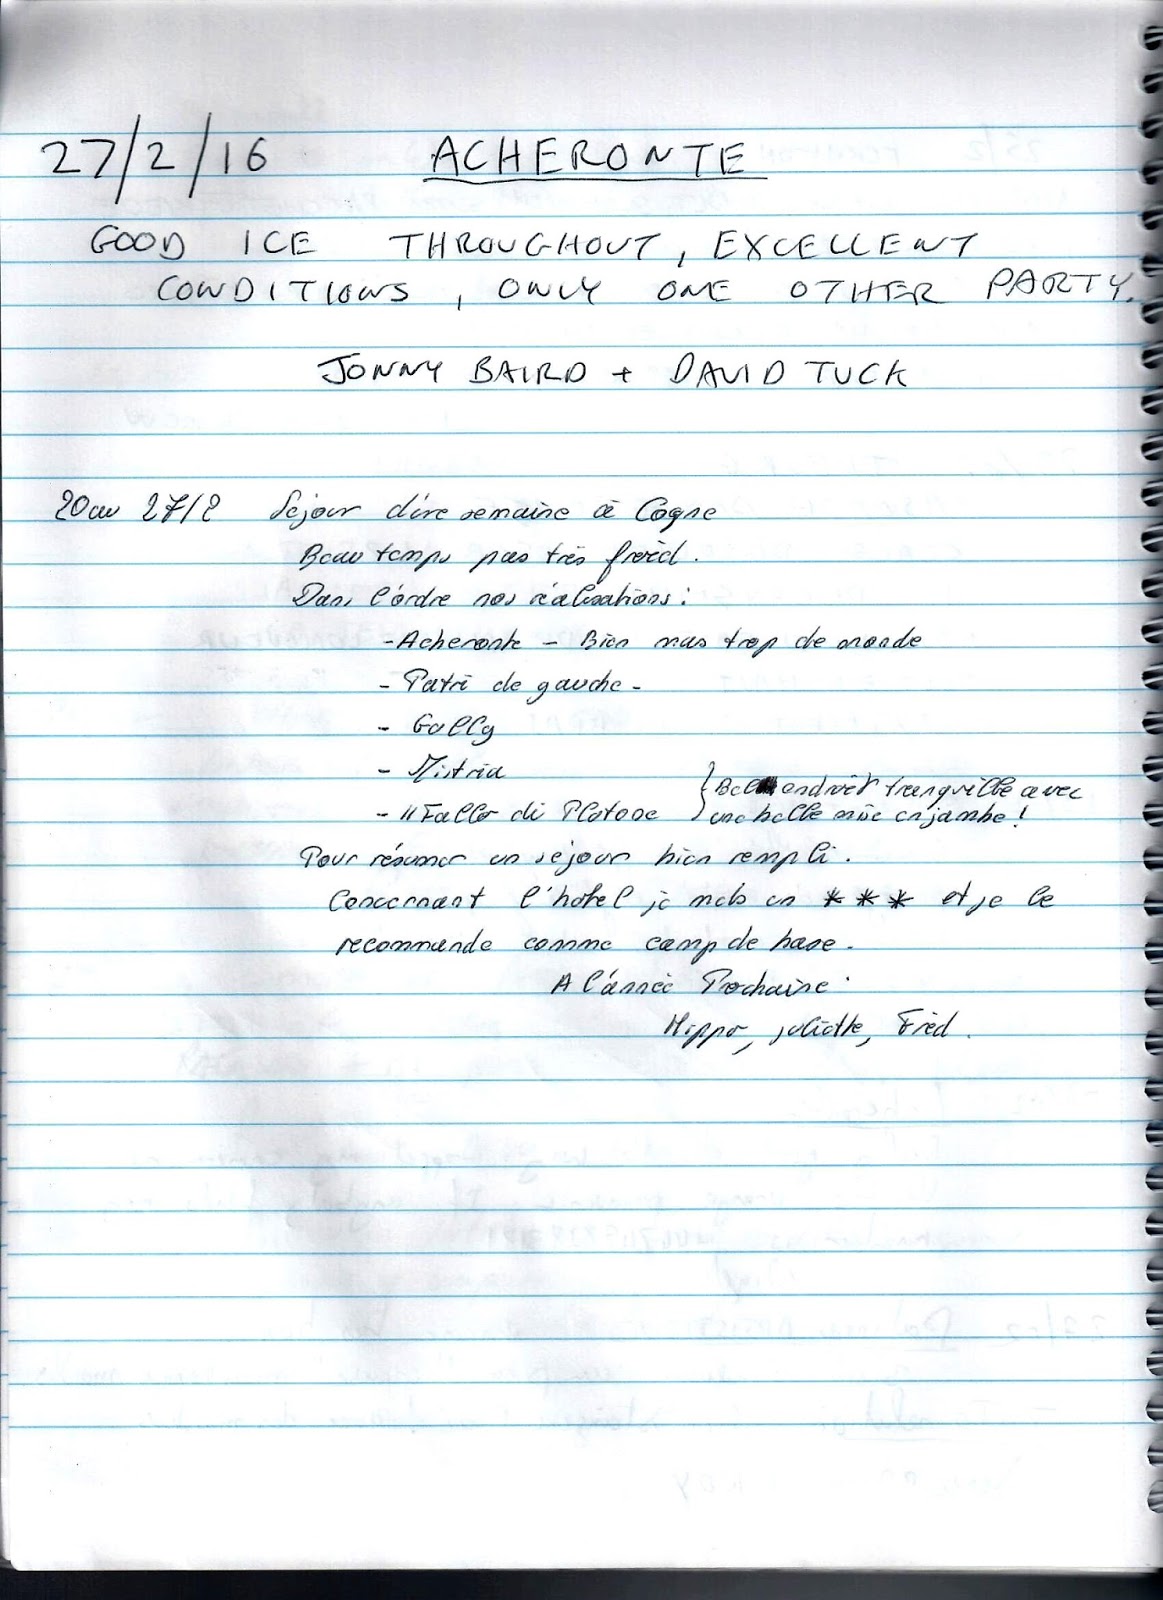 27/2/16 ACHERONTE
GOOD ICE THROUGHOUT, EXCELLENT
CONDITIONS, ONLY ONE OTHER PARTY.
JONNY BAIRD + DAVID TUCK
20 au 27/2 Séjour d'une semaine à Cogne
Beau temps pas très froid.
Dans l'ordre nos réalisations :
- Acheronte - Bien mais trop de monde
- Patri de gauche -
- Gully
- Mistria
- Il Fallo di Platone } Bel endroit tranquille avec
une belle mise en jambe !
Pour résumer un séjour bien rempli.
Concernant l'hotel je mets un *** et je le
recommande comme camp de base.
A l'année Prochaine.
Hippo, Juliette, Fred.